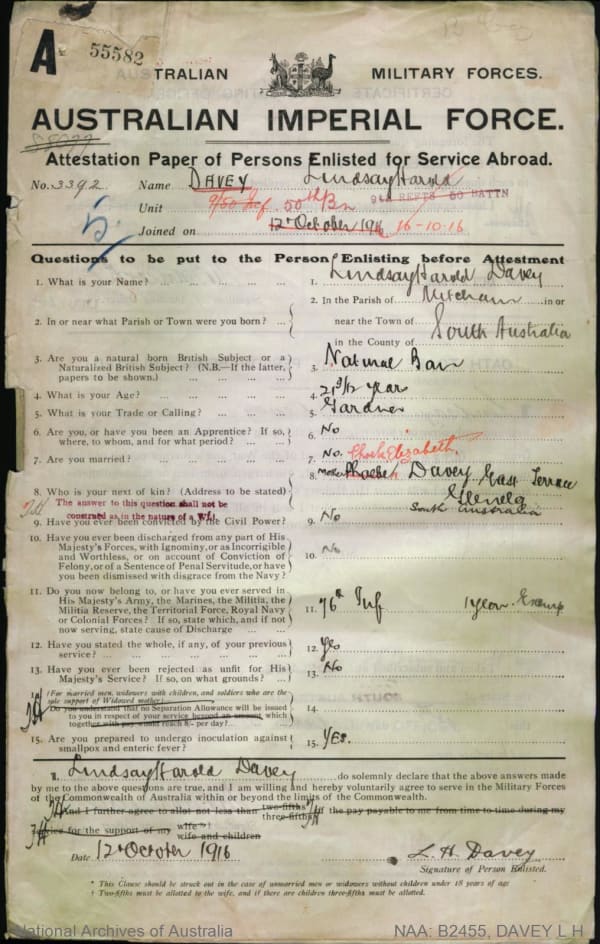 A 55582
AUSTRALIAN MILITARY FORCES.
AUSTRALIAN IMPERIAL FORCE.
Attestation Paper of Persons Enlisted for Service Abroad.
No. 3392 Name DAVEY Lindsay Harold
Unit 9/50 Inf 50th Bn 9th REPTS 50 BATTN
Joined on 12 October 1916 16-10-16
Questions to be put to the Person Enlisting before Attestment
1. What is your Name? ... 1. Lindsay Harold Davey
2. In or near what Parish or Town were you born? ... 2. In the Parish of Mitcham in or
near the Town of
in the County of South Australia
3. Are you a natural born British Subject or a
Naturalized British Subject? (N.B.—If the latter,
papers to be shown.) ... 3. Natural Born
4. What is your Age? ... 4. 21 9/12 years
5. What is your Trade or Calling? ... 5. Gardner
6. Are you, or have you been an Apprentice? If so,
where, to whom, and for what period? ... 6. No
7. Are you married? ... 7. No.
8. Who is your next of kin? (Address to be stated) 8. Mother Phoebe Elizabeth Davey East Terrace
Glenelg
South Australia
The answer to this question shall not be
construed as in the nature of a Will.
9. Have you ever been convicted by the Civil Power? 9. No
10. Have you ever been discharged from any part of His
Majesty's Forces, with Ignominy, or as Incorrigible
and Worthless, or on account of Conviction of
Felony, or of a Sentence of Penal Servitude, or have
you been dismissed with disgrace from the Navy? 10. No
11. Do you now belong to, or have you ever served in
His Majesty's Army, the Marines, the Militia, the
Militia Reserve, the Territorial Force, Royal Navy
or Colonial Forces? If so, state which, and if not
now serving, state cause of Discharge ... 11. 76th Inf 1 year. Exemp
12. Have you stated the whole, if any, of your previous
service? ... 12. Yes
13. Have you ever been rejected as unfit for His
Majesty's Service? If so, on what grounds? ... 13. No
14. (For married men, widowers with children, and soldiers who are the
sole support of Widowed mother)
Do you understand that no Separation Allowance will be issued
to you in respect of your service beyond an amount which
together with pay would reach 8/- per day? ... 14.
15. Are you prepared to undergo inoculation against
smallpox and enteric fever? 15. Yes.
I, Lindsay Harold Davey do solemnly declare that the above answers made
by me to the above questions are true, and I am willing and hereby voluntarily agree to serve in the Military Forces
of the Commonwealth of Australia within or beyond the limits of the Commonwealth.
*And I further agree to allot not less than two-fifths three-fifths of the pay payable to me from time to time during my
service for the support of my wife †
wife and children
Date 12 October 1916 L. H. Davey
Signature of Person Enlisted.
* This Clause should be struck out in the case of unmarried men or widowers without children under 18 years of age
† Two-fifths must be allotted to the wife, and if there are children three-fifths must be allotted.
National Archives of Australia NAA: B2455, DAVEY L H